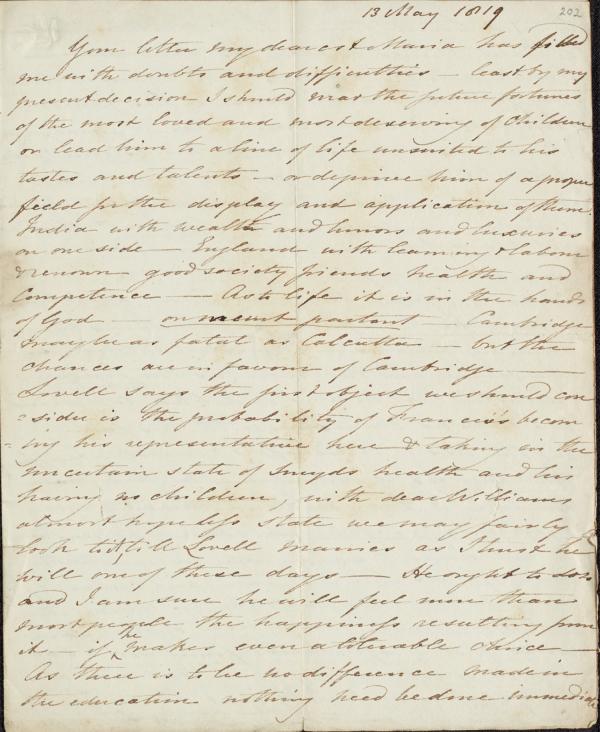 13 May 1819 202
Your letter my dearest Maria has filled
me with doubts and difficulties – least by my
present decision I should mar the future fortunes
of the most loved and most deserving of children
or lead him to a line of life unsuited to his
tastes and talents – or deprive him of a proper
field for the display and application of them.
India with wealth and honors and luxuries
on one side – England with learning & labour
& renown good society friends health and
Competence – As to life it is in the hands
of God – on meurt partout – Cambridge
may be as fatal as Calcutta – but the
chances are in favour of Cambridge –
Lovell says the first object we should con
=sider is the probability of Francis's becom
=ing his representative here & taking in the
uncertain state of Sneyds health and his
having no children, with dear Williams
almost hopeless state we may fairly
look to it till Lovell marries as I trust he
will one of these days – He ought to do so
and I am sure he will feel more than
most people the happiness resulting from
it – if he makes even a tolerable choice –
As there is to be no difference made in
the education nothing need be done immedia